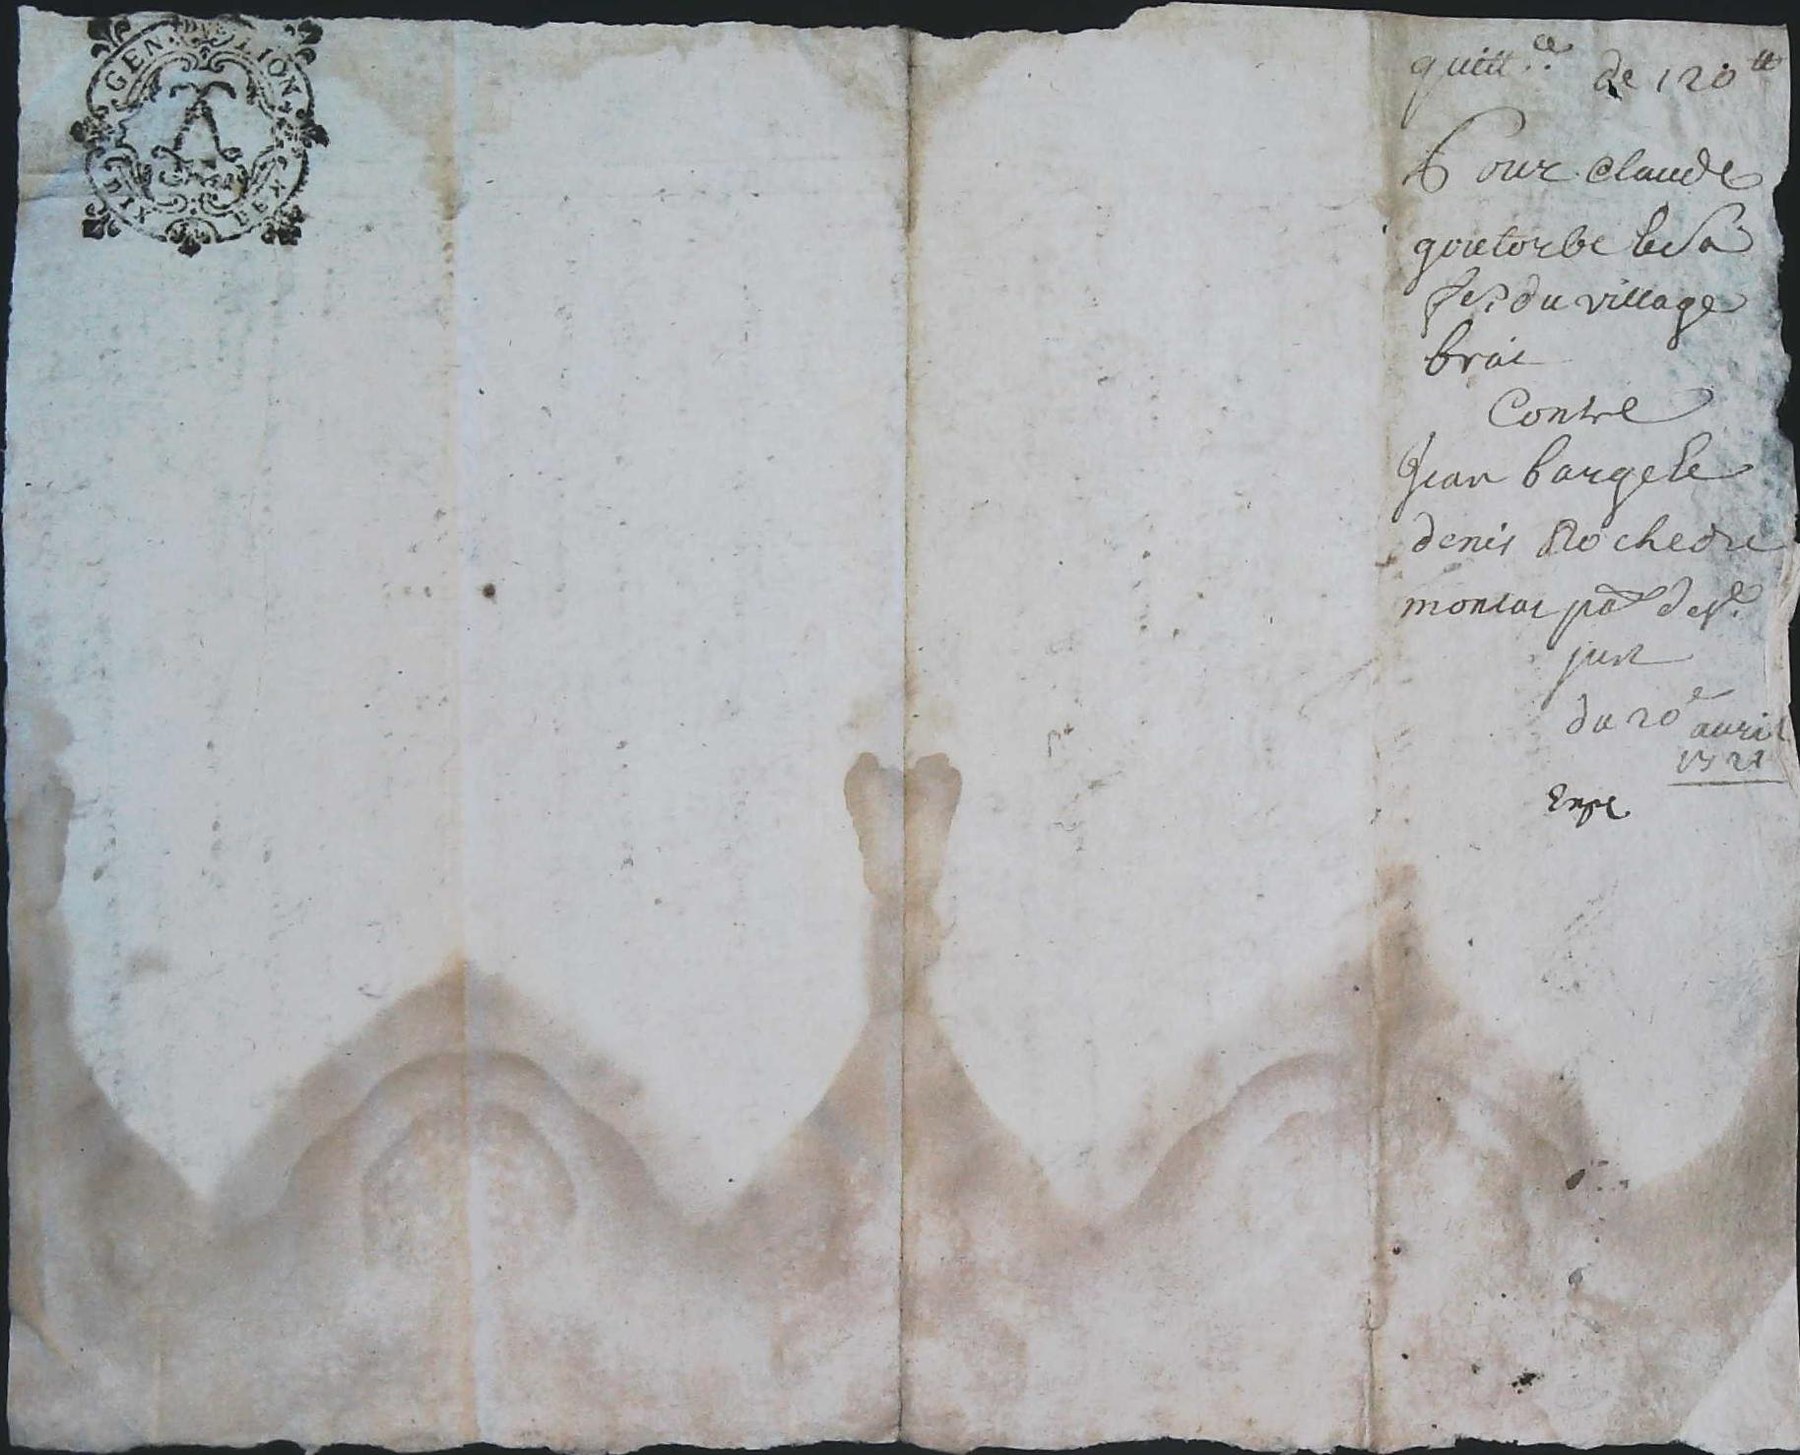 GEN. DE LION
DIX DEX
quitt.ce de 120 tt
Pour Claude
goutorbe et sa
fe. du village
brai
Contre
Jean barge et
denis Rochedu
montat pa de st.
just
du 20e avril
1721
Expe